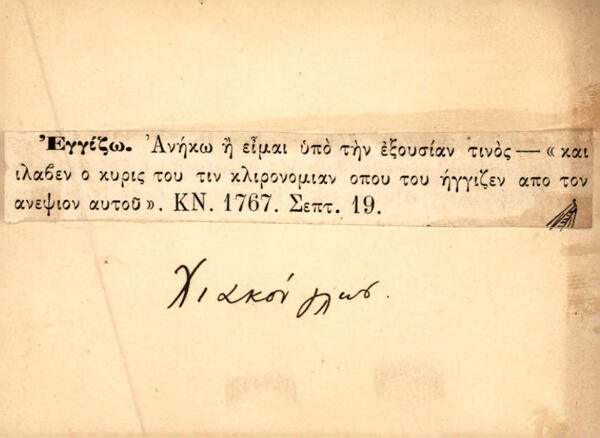 Ἐγγίζω. Ἀνήκω ἢ εἶμαι ὑπὸ τὴν ἐξουσίαν τινὸς — « και
ιλαβεν ο κυρις του τιν κλιρονομιαν οπου του ήγγιζεν απο τον
ανεψιον αυτοῦ ». ΚΝ. 1767. Σεπτ. 19.
Χιακόν γλωσ.